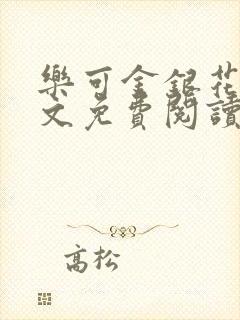 樂可金銀花
文免費閱讀
高松